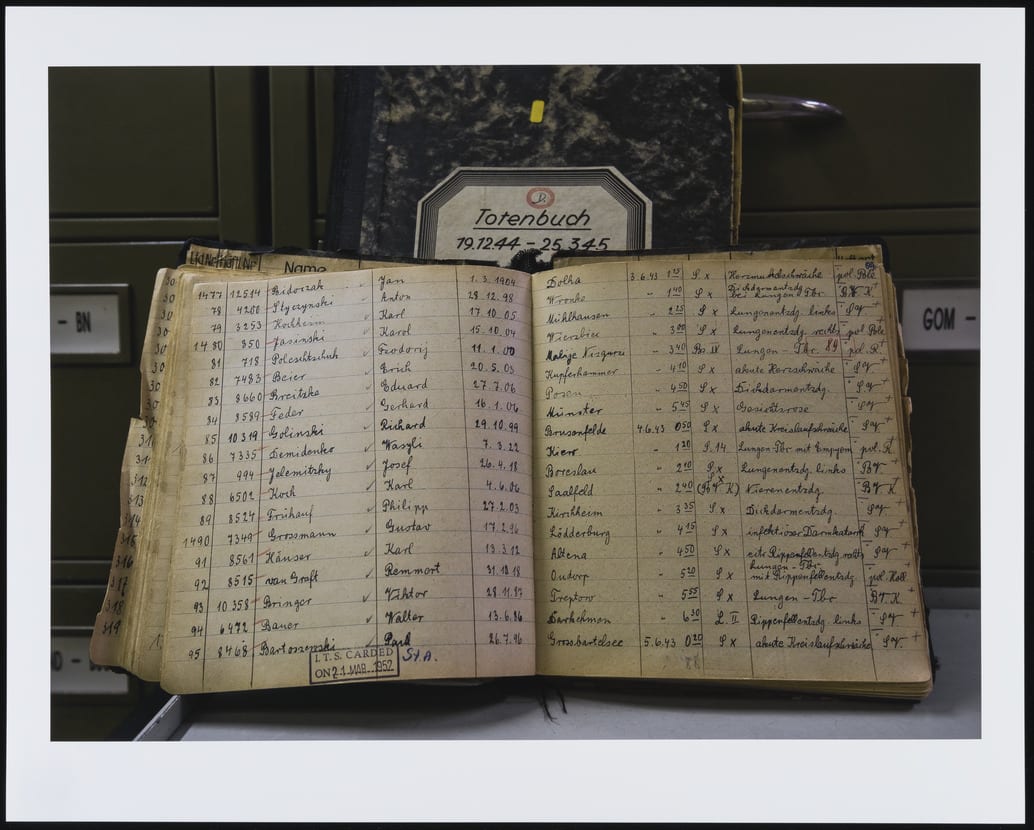 D.
Totenbuch
19.12.44 - 25.3.45
- BN
GOM -
Name
1477 12514 Bidorzak Jan 1.3.1904 Dolha 3.6.43 1 15 S x Herzmuskelschwäche pol. Pole
78 4200 Styczynski Anton 28.12.98 Wronke " 1 40 S x Dickdarmentzdg. bei Lungen-Tbr. B.V. K.
79 3253 Kochheim Karl 17.10.05 Mühlhausen " 2 25 S x Lungenentzdg. links
1480 350 Jasinski Karol 15.10.04 Wierzbiec " 3 00 S x Lungenentzdg. rechts pol. Pole
81 718 Poleschtschuk Feodorij 11.1.00 " 3 40 Lungen-Tbr. 89 pol. R.
82 7483 Beier Erich 20.5.03 Kupferhammer " 4 10 S x akute Herzschwäche
83 8660 Breitzke Eduard 27.7.06 Posen " 4 50 S x Dickdarmentzdg.
84 8589 Feder Gerhard 16.1.06 Münster " 5 45 S x Gesichtsrose
85 10319 Golinski Richard 29.10.99 Brusenfelde 4.6.43 0 50 S x akute Kreislaufschwäche
86 7335 Demidenko Waszli 7.3.22 Kiew " 1 20 S.14 Lungen-Tbr mit Empyem pol. R.
87 994 Jelemitzky Josef 26.4.18 Breslau " 2 10 S x Lungenentzdg. links BV
88 6502 Koch Karl 4.6.06 Saalfeld " 2 40 (BV K) Nierenentzdg. BV K
89 8524 Frühauf Philipp 27.2.03 Kirchheim " 3 35 S x Dickdarmentzdg.
1490 7349 Grossmann Gustav 17.2.96 Lödderburg " 4 15 S x infektiöser Darmkatarrh
91 8561 Häuser Karl 13.3.12 Altena " 4 50 S x eitr. Rippenfellentzdg rechts
92 8515 van Graft Remmert 31.10.18 Oudorp " 5 20 S x Lungen-Tbr. mit Rippenfellentzdg. pol. Holl.
93 10358 Bringer Viktor 28.11.87 Treptow " 5 55 S x Lungen-Tbr BV K
94 6472 Bauer Walter 13.6.86 Darkehmen " 6 30 L. II Rippenfellentzdg. links
95 8468 Bartoszewski Paul 26.7.96 Grossbartelsee 5.6.43 0 20 S x akute Kreislaufschwäche
I.T.S. CARDED
ON 21 MAR. 1952
StA.